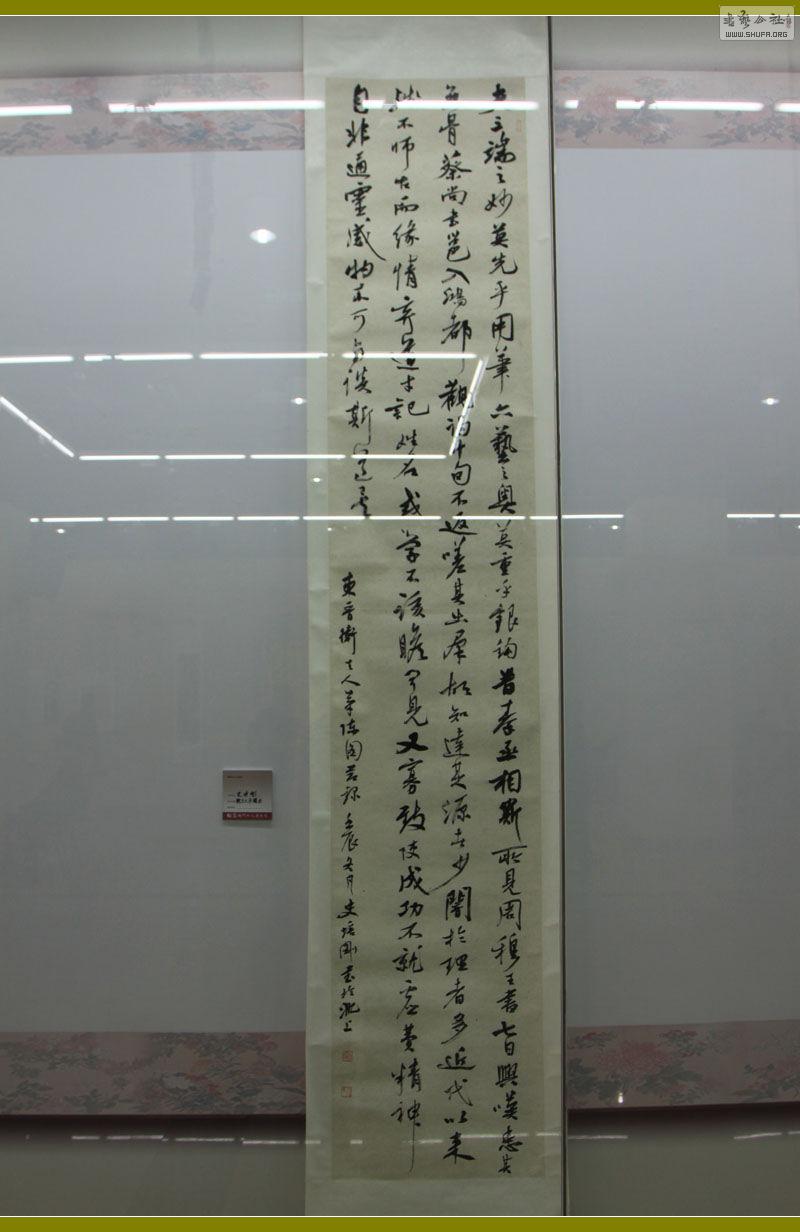 夫三端之妙莫先乎用筆六藝之奧莫重乎銀鉤昔李丞相斯所見周穆王書七日興嘆患其
無骨蔡尚書邕入鴻都觀碣十旬不返嗟其出群故知達其源者少闇於理者多近代以來
殊不師古而緣情棄道才記姓名或学不該贍聞見又寡致使成功不就虛費精神
自非通靈感物不可与談斯道矣
東晉衛夫人筆陣圖 壬辰冬月史培剛書於淝上
書藝公社
WWW.SHUFA.ORG